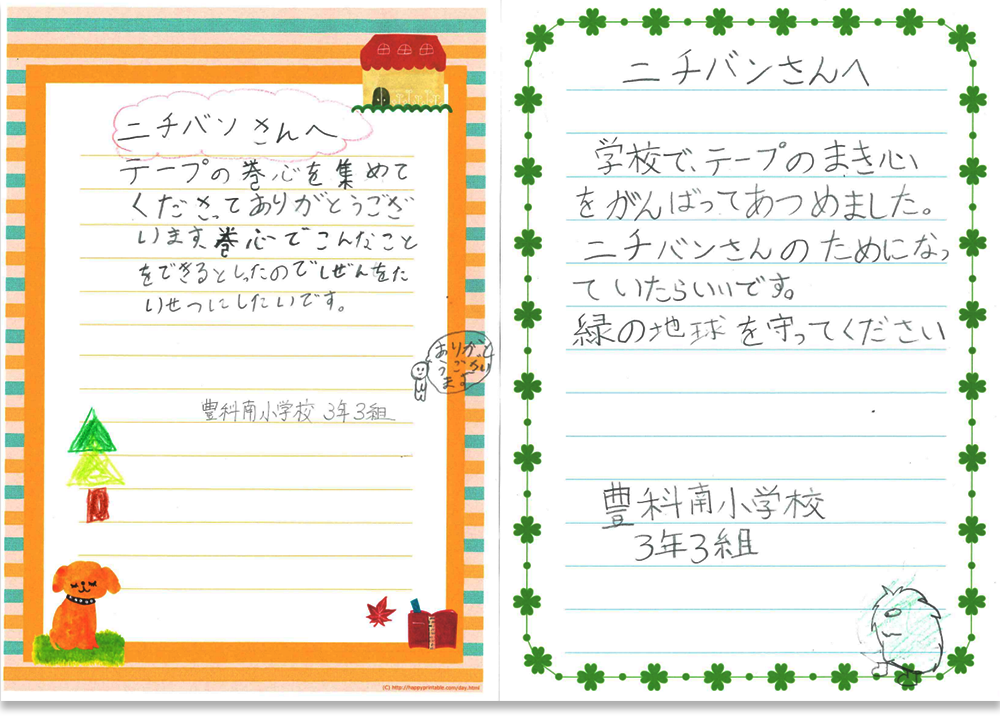 ニチバンさんへ
テープの巻心を集めて
くださってありがとうござ
います。巻心でこんなこと
をできるとしったのでしぜんをた
いせつにしたいです。
ありがと
うござい
ます
豊科南小学校 3年3組
(C) http://happyprintable.com/day.html
ニチバンさんへ
学校で、テープのまき心
をがんばってあつめました。
ニチバンさんのためになっ
ていたらいいです。
緑の地球を守ってください
豊科南小学校
3年3組